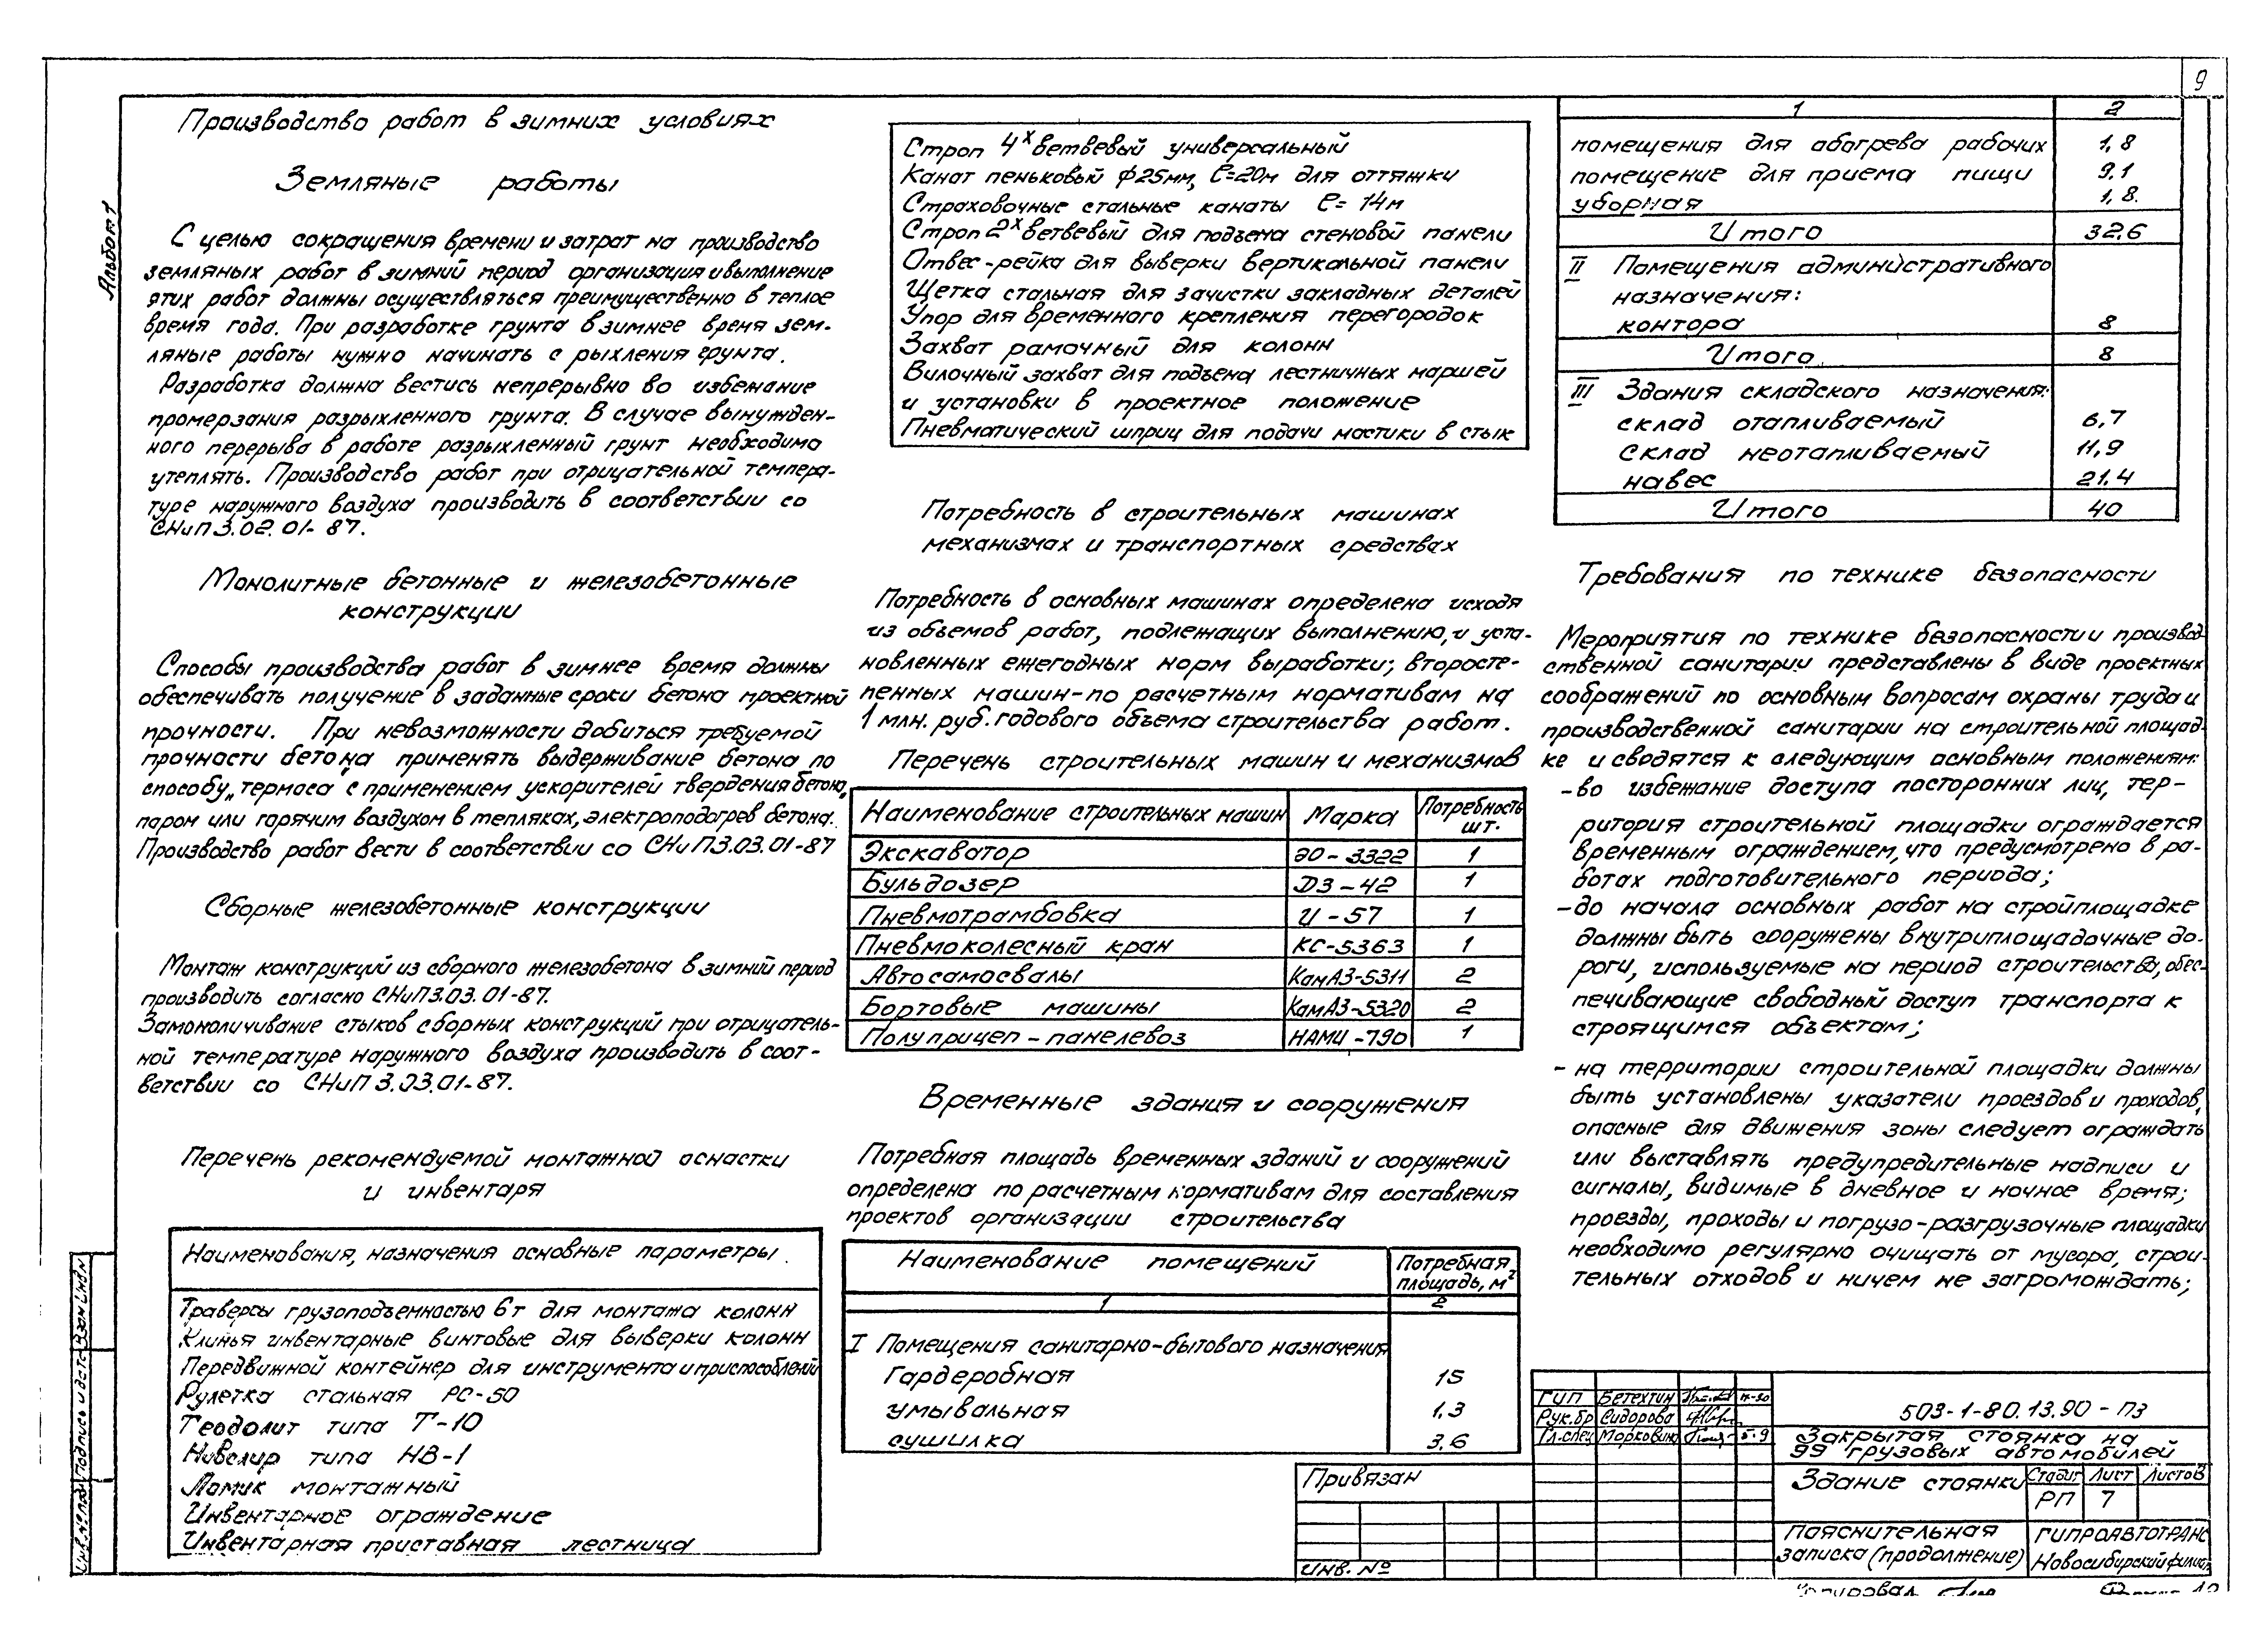 9
Альбом 1
Производство работ в зимних условиях
Земляные работы
С целью сокращения времени и затрат на производство
земляных работ в зимний период организация и выполнение
этих работ должны осуществляться преимущественно в теплое
время года. При разработке грунта в зимнее время зем-
ляные работы нужно начинать с рыхления грунта.
Разработка должна вестись непрерывно во избежание
промерзания разрыхленного грунта. В случае вынужден-
ного перерыва в работе разрыхленный грунт необходимо
утеплять. Производство работ при отрицательной темпера-
туре наружного воздуха производить в соответствии со
СНиП 3.02.01-87.
Монолитные бетонные и железобетонные
конструкции
Способы производства работ в зимнее время должны
обеспечивать получение в заданные сроки бетона проектной
прочности. При невозможности добиться требуемой
прочности бетона применять выдерживание бетона по
способу „термоса" с применением ускорителей твердения бетона,
паром или горячим воздухом в тепляках, электроподогрев бетона.
Производство работ вести в соответствии со СНиП 3.03.01-87
Сборные железобетонные конструкции
Монтаж конструкций из сборного железобетона в зимний период
производить согласно СНиП 3.03.01-87.
Замоноличивание стыков сборных конструкций при отрицатель-
ной температуре наружного воздуха производить в соот-
ветствии со СНиП 3.03.01-87.
Перечень рекомендуемой монтажной оснастки
и инвентаря
Наименования, назначения основные параметры.
Траверсы грузоподъемностью 6т для монтажа колонн
Клинья инвентарные винтовые для выверки колонн
Передвижной контейнер для инструмента и приспособлений
Рулетка стальная РС-50
Теодолит типа Т-10
Нивелир типа НВ-1
Ломик монтажный
Инвентарное ограждение
Инвентарная приставная лестница
Строп 4х ветвевый универсальный
Канат пеньковый ф25мм, ℓ=20м для оттяжки
Страховочные стальные канаты ℓ= 14м
Строп 2х ветвевый для подъема стеновой панели
Отвес-рейка для выверки вертикальной панели
Щетка стальная для зачистки закладных деталей
Упор для временного крепления перегородок
Захват рамочный для колонн
Вилочный захват для подъема лестничных маршей
и установки в проектное положение
Пневматический шприц для подачи мастики в стык
Потребность в строительных машинах
механизмах и транспортных средствах
Потребность в основных машинах определена исходя
из объемов работ, подлежащих выполнению, и уста-
новленных ежегодных норм выработки; второсте-
пенных машин-по расчетным нормативам на
1 млн. руб. годового объема строительства работ.
Перечень строительных машин и механизмов
Наименование строительных машин Марка Потребность шт.
Экскаватор ЭО-3322 1
Бульдозер ДЗ-42 1
Пневмотрамбовка И-57 1
Пневмоколесный кран КС-5363 1
Автосамосвалы КамАЗ-5311 2
Бортовые машины КамАЗ-5320 2
Полуприцеп-панелевоз НАМИ-790 1
Временные здания и сооружения
Потребная площадь временных зданий и сооружений
определена по расчетным нормативам для составления
проектов организации строительства
Наименование помещений Потребная площадь, м2
1 2
I Помещения санитарно-бытового назначения
Гардеробная 15
умывальная 1,3
сушилка 3,6
1 2
помещения для обогрева рабочих 1,8
помещение для приема пищи 9,1
уборная 1,8.
Итого 32,6
II Помещения административного
назначения:
контора 8
Итого 8
III Здания складского назначения:
склад отапливаемый 6,7
склад неотапливаемый 11,9
навес 21,4
Итого 40
Требования по технике безопасности
Мероприятия по технике безопасности и производ-
ственной санитарии представлены в виде проектных
соображений по основным вопросам охраны труда и
производственной санитарии на строительной площад-
ке и сводятся к следующим основным положениям:
-во избежание доступа посторонних лиц, тер-
ритория строительной площадки ограждается
временным ограждением, что предусмотрено в ра-
ботах подготовительного периода;
-до начала основных работ на стройплощадке
должны быть сооружены внутриплощадочные до-
роги, используемые на период строительства, обес-
печивающие свободный доступ транспорта к
строящимся объектам;
- на территории строительной площадки должны
быть установлены указатели проездов и проходов,
опасные для движения зоны следует ограждать
или выставлять предупредительные надписи и
сигналы, видимые в дневное и ночное время;
проезды, проходы и погрузо-разгрузочные площадки
необходимо регулярно очищать от мусора, строи-
тельных отходов и ничем не загромождать;
ГИП Бетехтин
Рук.бр Сидорова
Гл.спец Морковин
503-1-80.13.90 - ПЗ
Закрытая стоянка на
99 грузовых автомобилей
Здание стоянки
Стадия Лист Листов
РП 7
Пояснительная
записка (продолжение)
ГИПРОАВТОТРАНС
Новосибирский филиал
Привязан
Инв. №
Взам инв №
Подпись и дата
Инв.№ подл
Копировал
Формат